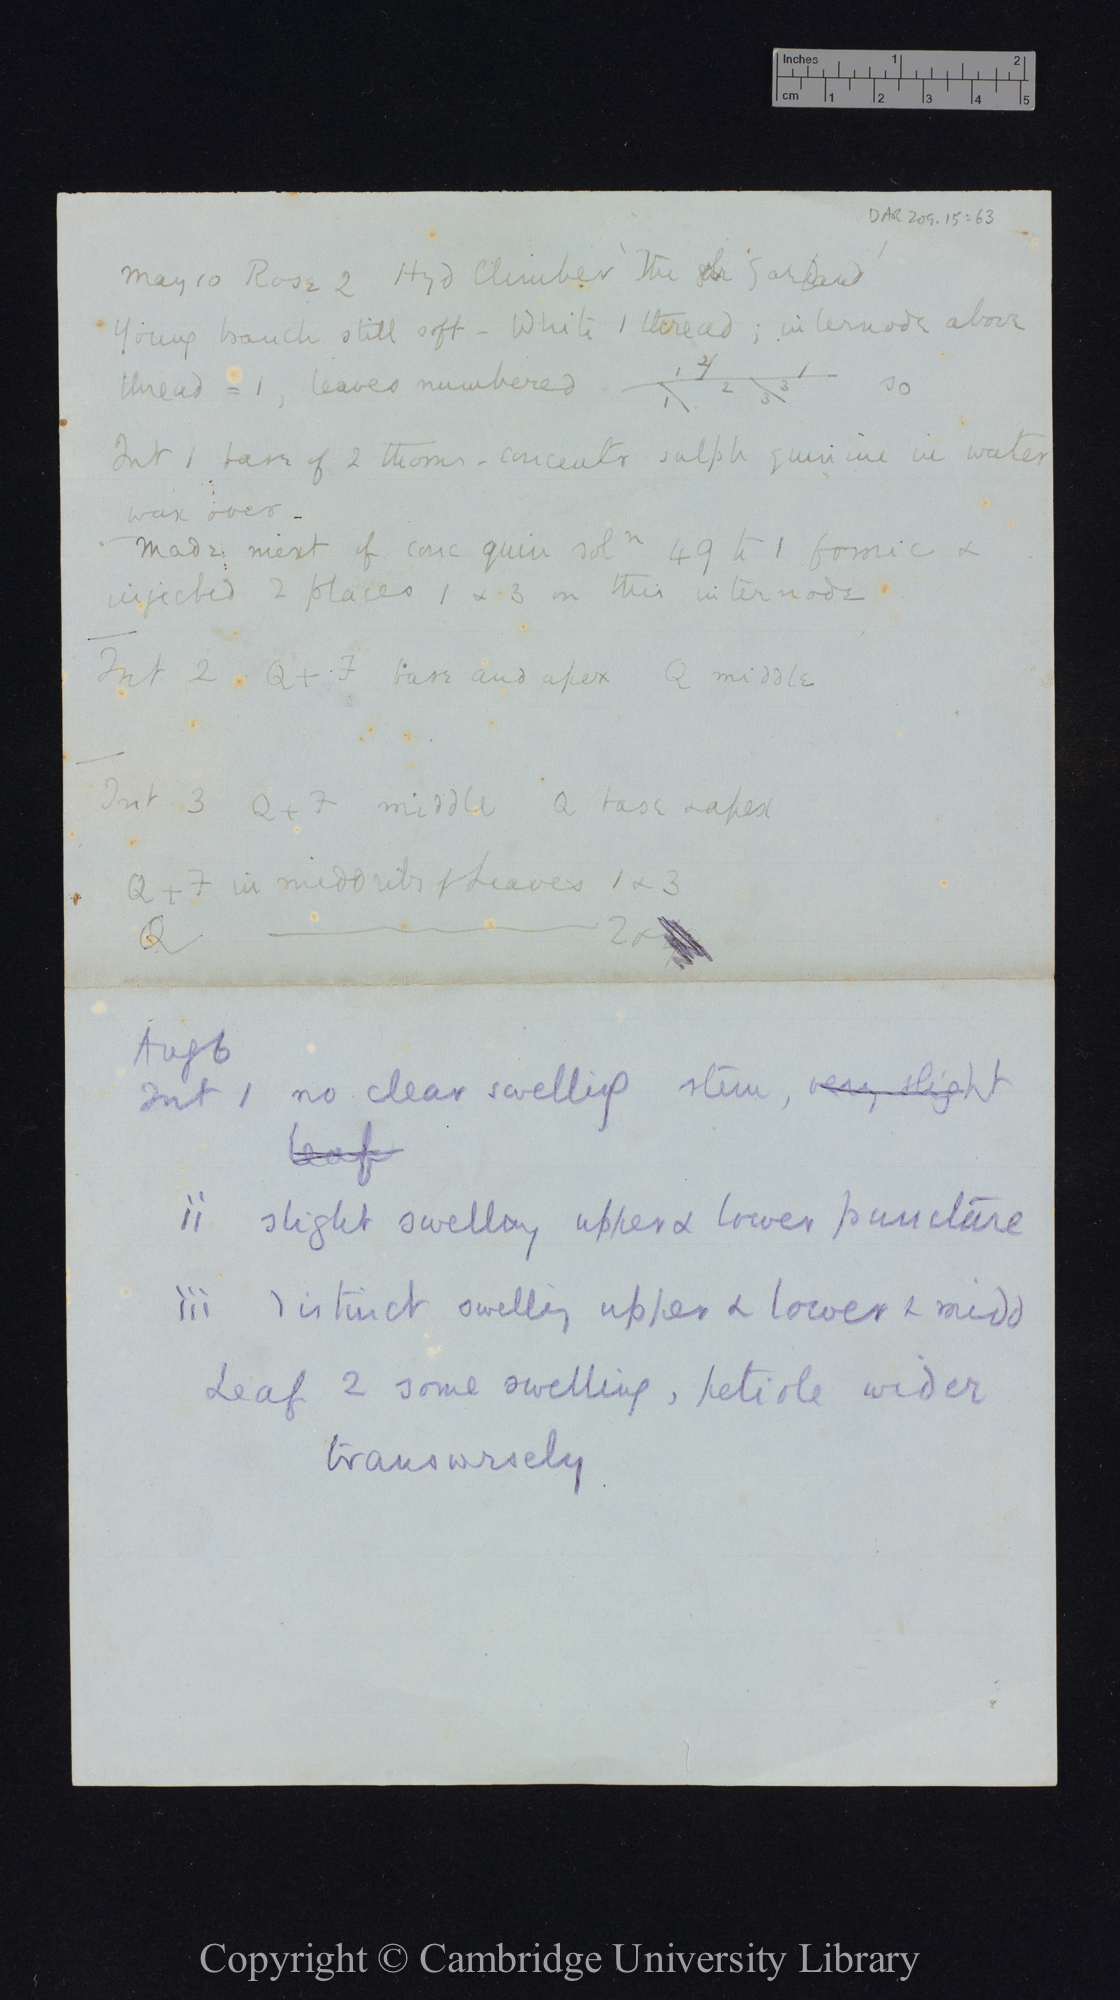 Inches 1 2
cm 1 2 3 4 5
DAR 209.15:63
May 10 Rose 2 Hyd Climber 'The Garland'
Young branch still soft - White 1 thread; internode above
thread = 1, leaves numbered 1 2 3 1 2 3 so
Int 1 base of 2 thorns - concentr sulph quinine in water
wax over -
Made mixt of conc quin soln 49 to 1 formic &
injected 2 places 1 & 3 on this internode
Int 2 Q + F base and apex Q middle
Int 3 Q + F middle Q base & apex
Q + F in middribs of Leaves 1 & 3
Q ———— 2 &
Aug 6
Int 1 no clear swelling stem, very slight
leaf
ii slight swelling upper & lower puncture
iii distinct swelling upper & lower & midd
Leaf 2 some swelling, petiole wider
transversely
Copyright © Cambridge University Library